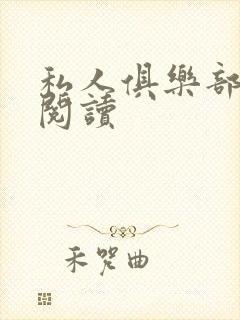 私人俱樂部
閱讀
禾哭曲